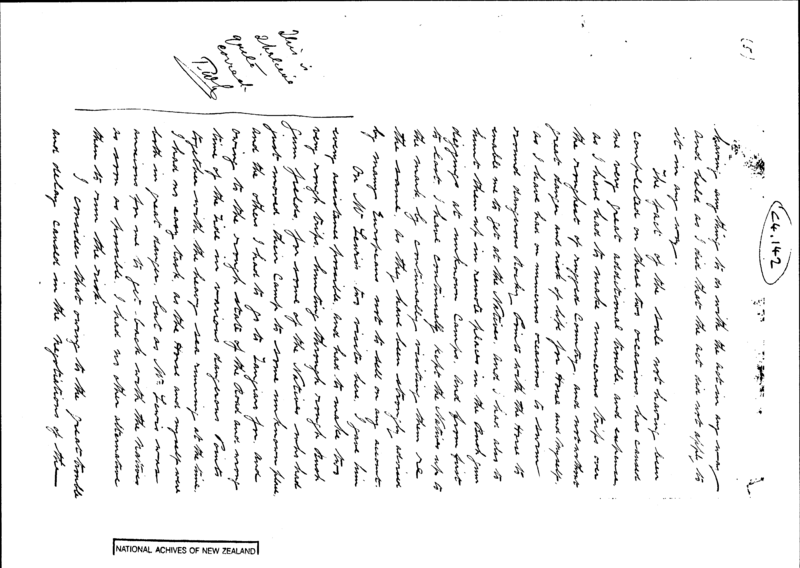 (5)
C4.142
having anything to do with the acts in any way
and held as I did that the act did not apply to
it in any way.
The fact of the sale not having been
completed on these two occasions has caused
me very great additional trouble and expense
as I have had to make numerous trips over
the roughest of rugged Country and not without
great danger and risk of life for Horse and Myself.
as I have had on numerous occasions to swim
round dangerous Rocky Points with the Horse to
enable me to get at the Natives, and I had also to
hunt them up in remote places in the Bush Gum
diggings at unknown Camps, and from first
to last I have continually kept the Natives up to
the mark by continually visiting them re
the same as they have been strongly advised
by many Europeans not to sell on any account.
On Mr Lewis' two visits here I gave him
every assistance possible and had to make two
very rough trips, hunting through rough Bush
Gum fields, for some of the Natives who had
just moved their Camp to some unknown place
and the others I had to go to Tangaoa for and
owing to the rough state of the Road and wrong
time of the Tide in various dangerous Points
together with the heavy sea running at the time
I had no easy task as the Horse and myself were
both in great danger, but as Mr Lewis was
anxious for me to get back with the Natives
as soon as possible, I had no other alternative
than to run the risk.
I consider that owing to the great trouble
and delay caused in the Negotiations of the
This is
quite
correct
NATIONAL ACHIVES OF NEW ZEALAND